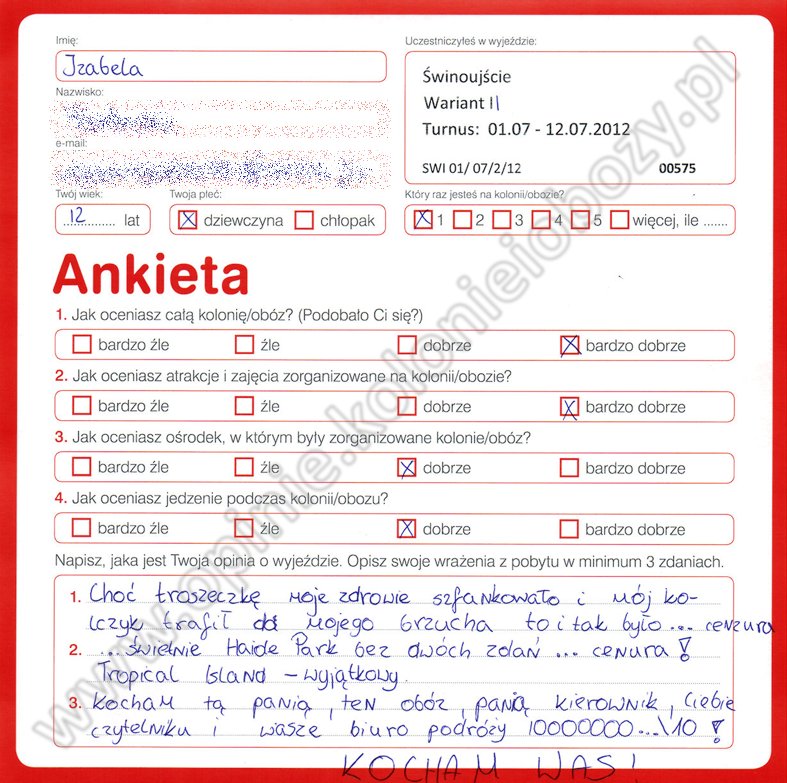 Imię:
Izabela
Nazwisko:
e-mail:
Twój wiek:
12 lat
Twoja płeć:
dziewczyna chłopak
Uczestniczyłeś w wyjeździe:
Świnoujście
Wariant II
Turnus: 01.07 - 12.07.2012
SWI 01/ 07/2/12 00575
Który raz jesteś na kolonii/obozie?
1 2 3 4 5 więcej, ile .......
Ankieta
1. Jak oceniasz całą kolonię/obóz? (Podobało Ci się?)
bardzo źle źle dobrze bardzo dobrze
2. Jak oceniasz atrakcje i zajęcia zorganizowane na kolonii/obozie?
bardzo źle źle dobrze bardzo dobrze
3. Jak oceniasz ośrodek, w którym były zorganizowane kolonie/obóz?
bardzo źle źle dobrze bardzo dobrze
4. Jak oceniasz jedzenie podczas kolonii/obozu?
bardzo źle źle dobrze bardzo dobrze
Napisz, jaka jest Twoja opinia o wyjeździe. Opisz swoje wrażenia z pobytu w minimum 3 zdaniach.
1. Choć troszeczkę moje zdrowie szfankowało i mój ko-
lczyk trafił do mojego brzucha to i tak było ... cenzura
2. ... świetnie Haide Park bez dwóch zdań ... cenura !
Tropical Island - wyjątkowy.
3. Kocham tą panią, ten obóz, panią kierownik, Ciebie
czytelniku i wasze biuro podróży 10000000...\10 !
KOCHAM WAS!
www.opinie.kolonieiobozy.pl